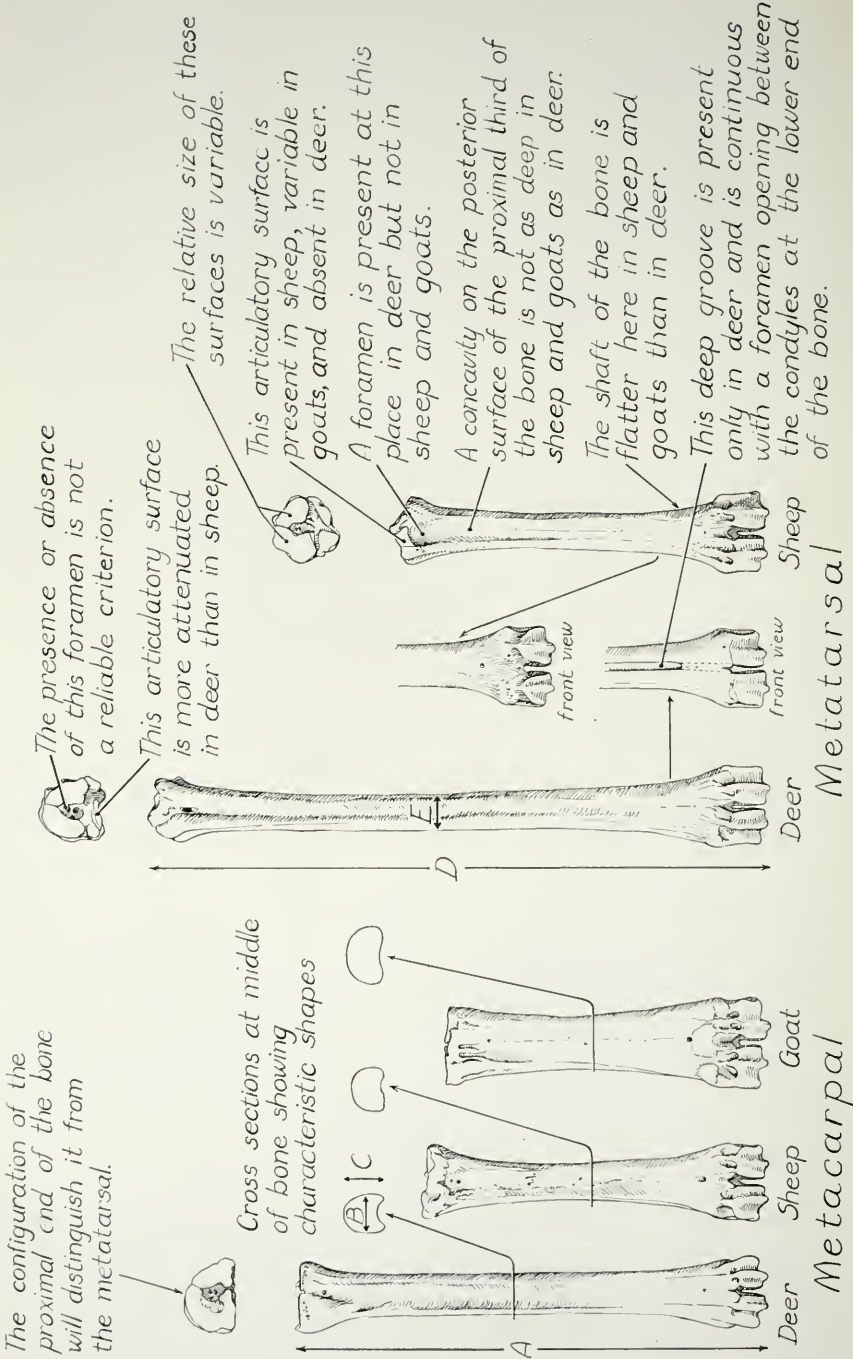 The configuration of the
proximal end of the bone
will distinguish it from
the metatarsal.
Cross sections at middle
of bone showing
characteristic shapes
A
B
C
Deer
Sheep
Goat
Metacarpal
The presence or absence
of this foramen is not
a reliable criterion.
This articulatory surface
is more attenuated
in deer than in sheep.
D
E
Deer
front view
front view
Sheep
Metatarsal
The relative size of these
surfaces is variable.
This articulatory surface is
present in sheep, variable in
goats, and absent in deer.
A foramen is present at this
place in deer but not in
sheep and goats.
A concavity on the posterior
surface of the proximal third of
the bone is not as deep in
sheep and goats as in deer.
The shaft of the bone is
flatter here in sheep and
goats than in deer.
This deep groove is present
only in deer and is continuous
with a foramen opening between
the condyles at the lower end
of the bone.